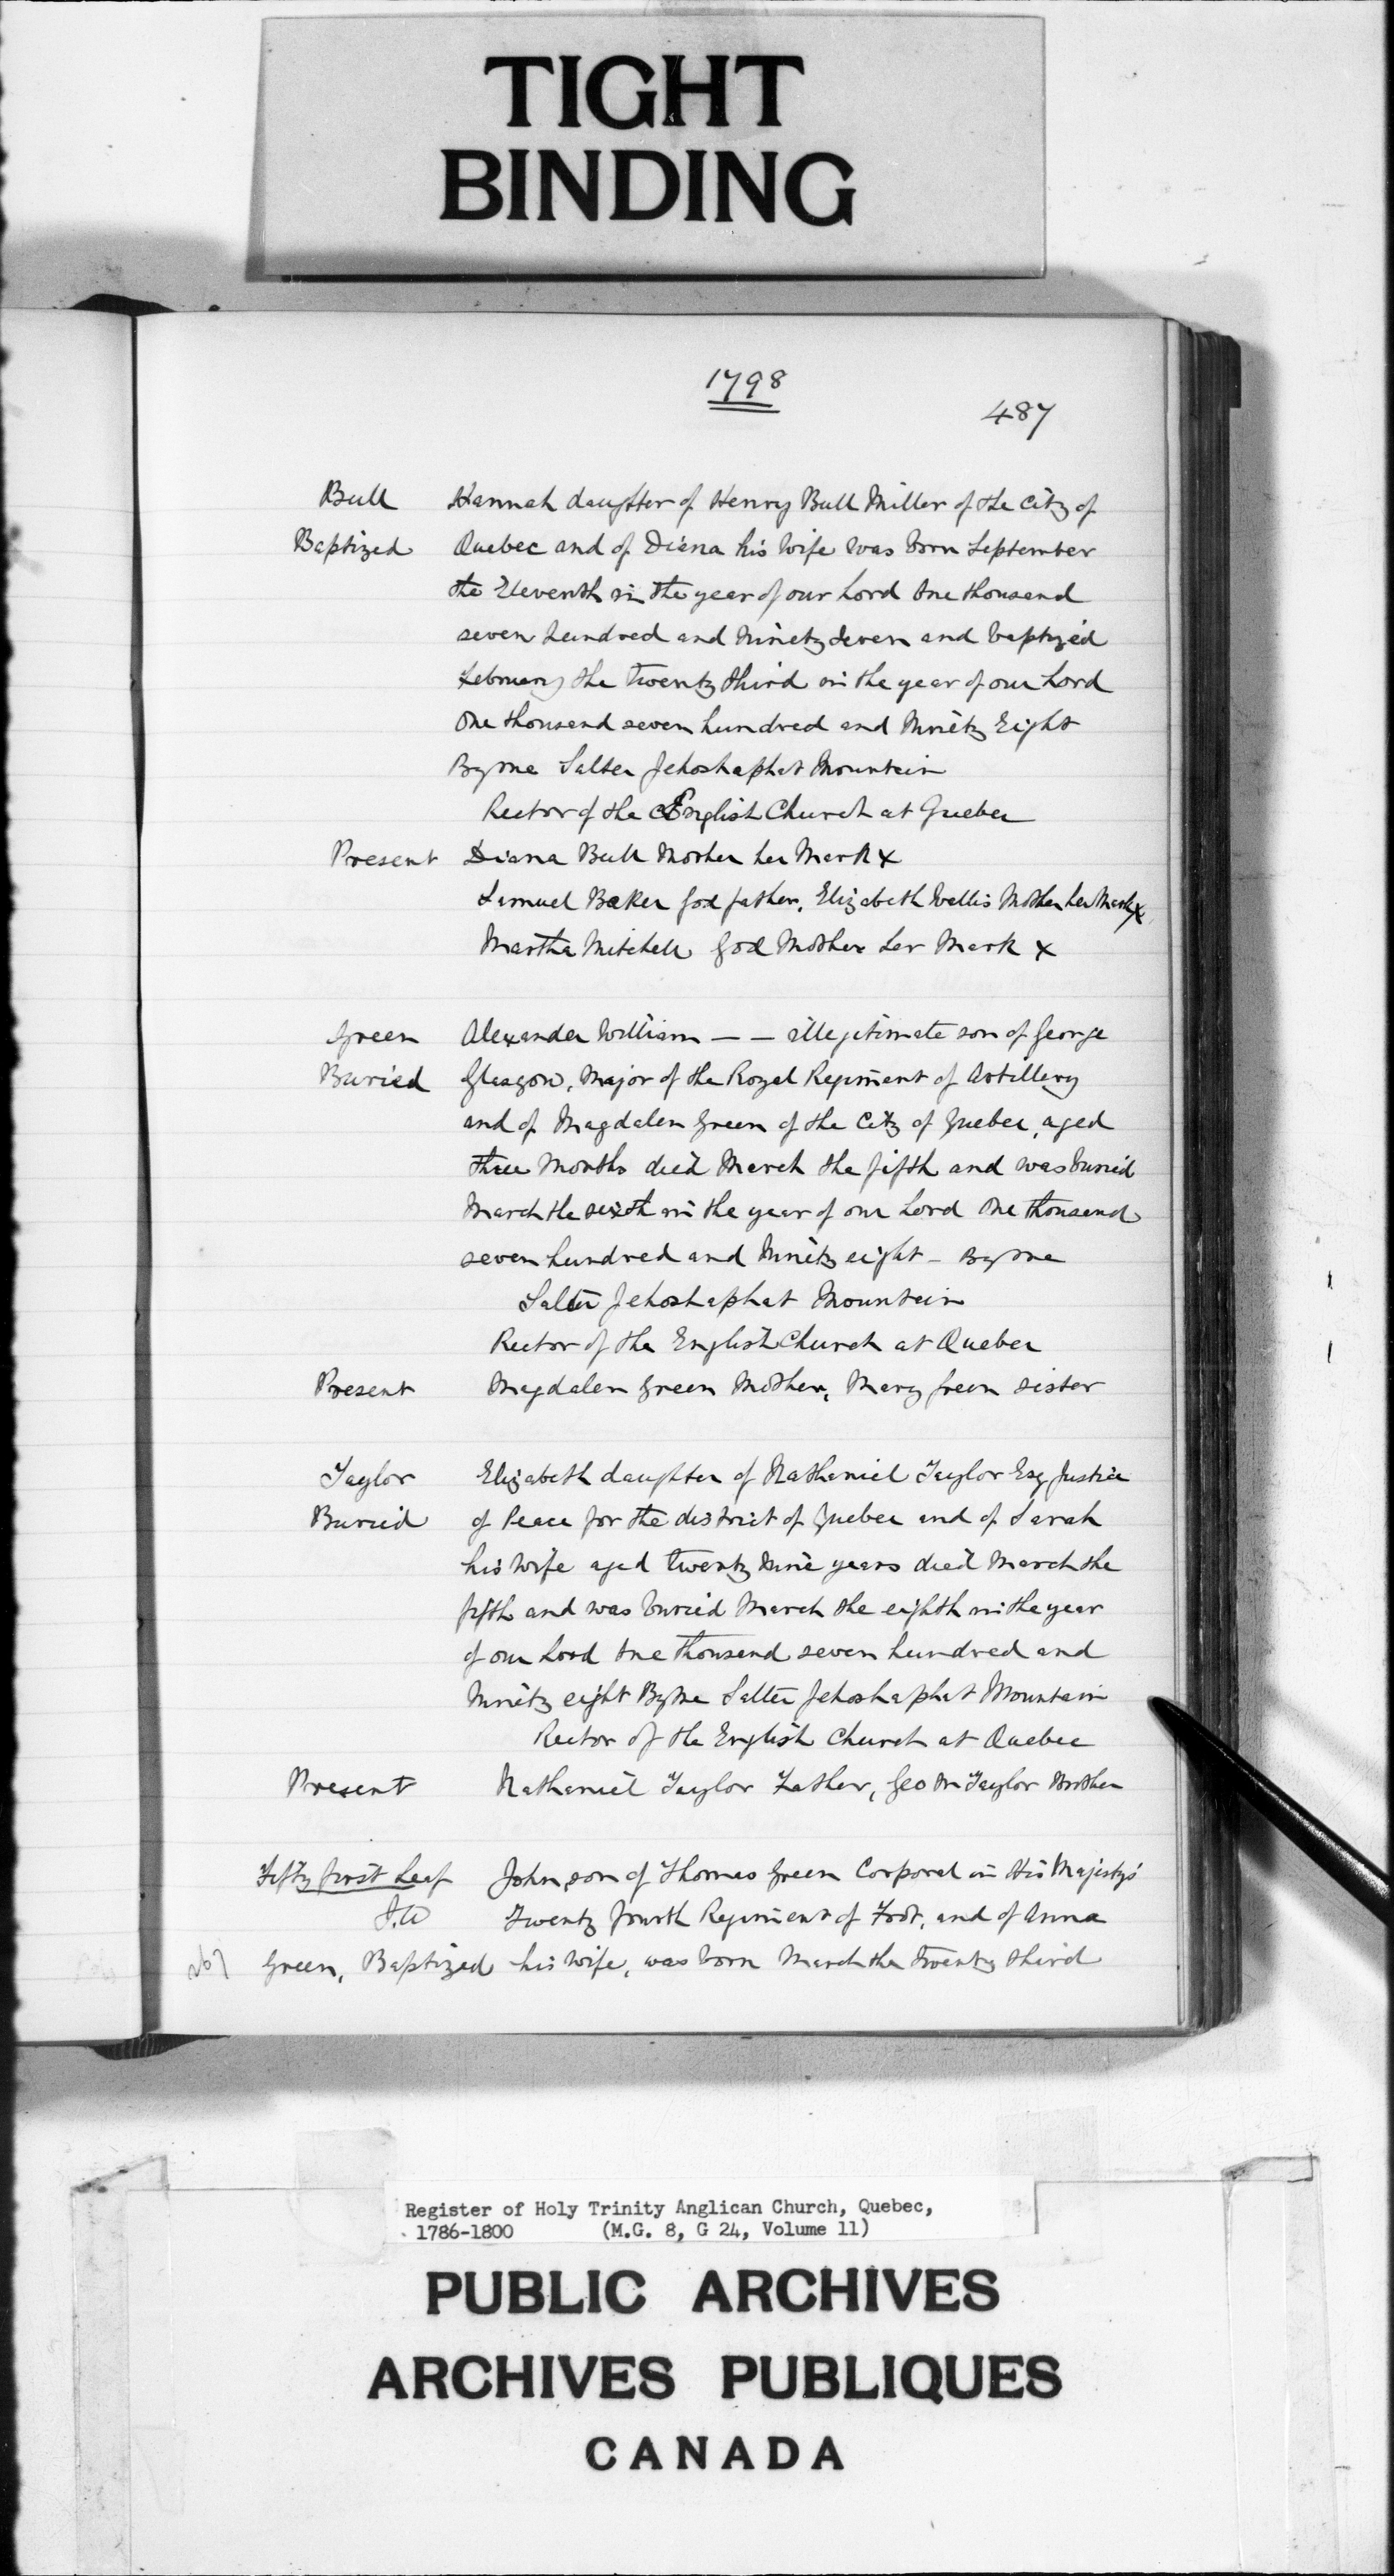 TIGHT
BINDING
1798
487
Bull Hannah daughter of Henry Bull Miller of the City of
Baptized Quebec and of Diana his Wife was born September
the Eleventh in the year of our Lord One thousand
seven hundred and Ninety Seven and baptized
February the twenty third in the year of our Lord
One thousand seven hundred and Ninety Eight
By me Salter Jehoshaphat Mountain
Rector of the English Church at Quebec
Present Diana Bull Mother her Mark x
Samuel Baker God father, Elizabeth Wallis Mother her Mark x
Martha Mitchell God Mother her Mark x
Green Alexander William — — illegitimate son of George
Buried Glasgow, Major of the Royal Regiment of Artillery
and of Magdalen Green of the City of Quebec, aged
three Months died March the fifth and was buried
March the sixth in the year of our Lord One thousand
seven hundred and Ninety eight - By me
Salter Jehoshaphat Mountain
Rector of the English Church at Quebec
Present Magdalen Green Mother, Mary Green sister
Taylor Elizabeth daughter of Nathaniel Taylor Esq Justice
Buried of Peace for the district of Quebec and of Sarah
his Wife aged twenty Nine years died March the
fifth and was buried March the eighth in the year
of our Lord One thousand seven hundred and
Ninety eight By me Salter Jehoshaphat Mountain
Rector of the English Church at Quebec
Present Nathaniel Taylor Father, Geo M Taylor Brother
Fifty first Leaf John son of Thomas Green Corporal in His Majesty's
J.W Twenty fourth Regiment of Foot, and of Anna
Green, Baptized his Wife, was born March the twenty third
Register of Holy Trinity Anglican Church, Quebec,
1786-1800 (M.G. 8, G 24, Volume 11)
PUBLIC ARCHIVES
ARCHIVES PUBLIQUES
CANADA